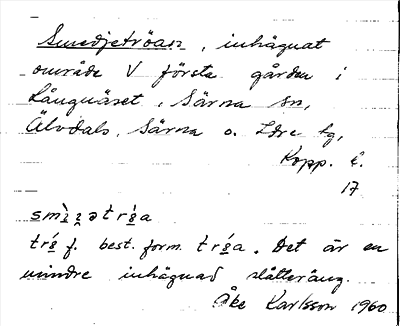 Smedjetröan, inhägnat
område V första gården i
Långnäset, Särna sn,
Älvdals, Särna o. Idre tg,
Kopp. l.
17
tré f. best. form tréa. Det är en
mindre inhägnad slåtteräng.
Åke Karlsson 1960